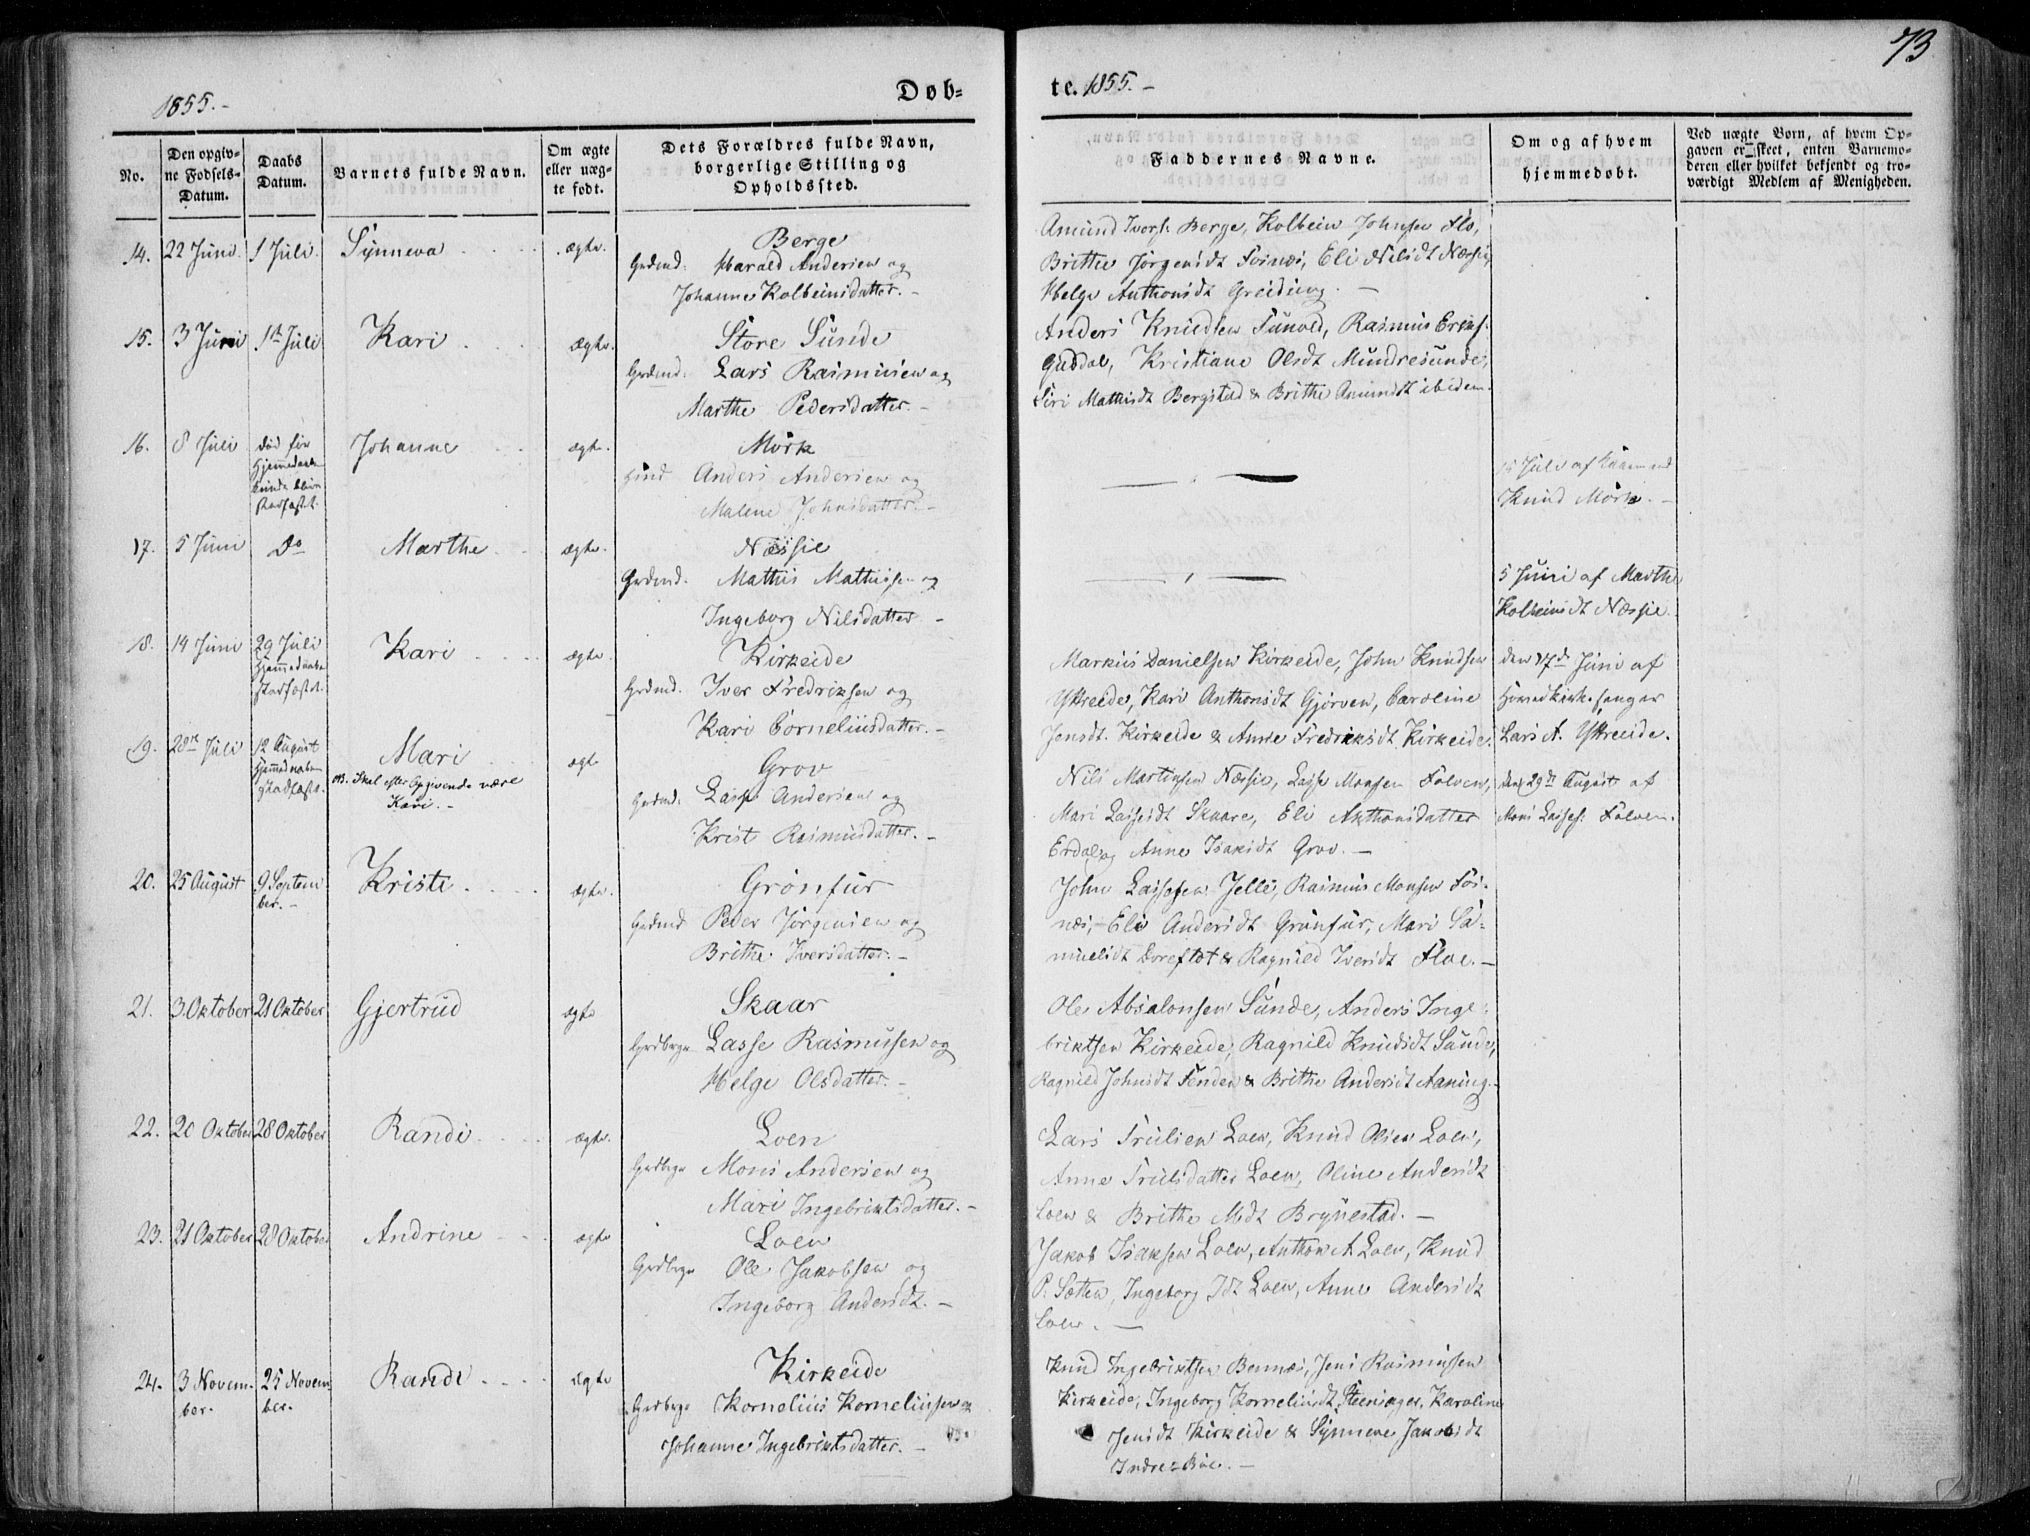 73
1855.-
Døb-
te. 1855.-
No.
Den opgiv-
ne Fødsels-
Datum.
Daabs
Datum.
Barnets fulde Navn.
Om ægte
eller uæg-
te født.
Dets Forældres fulde Navn,
borgerlige Stilling og
Opholdssted.
Faddernes Navne.
Om og af hvem
hjemmedøbt.
Ved uægte Børn, af hvem Op-
gaven er skeet, enten Barnemo-
deren eller hvilket bekjendt og tro-
værdigt Medlem af Menigheden.
14. 22 Juni. 1 Juli. Synneva ægte.
Berge
Grdmd. Harald Andersen og
Johanne Kolbeinsdatter.-
Amund Ivers. Berge, Kolbein Johnsen Flo,
Brithe Jørgensdt Fosnæs, Eli Nilsdt Næssie,
Helge Anthonsdt Greiding.-
15. 3 Juni 1ste Juli Kari ægte.
Store Sunde
Grdmd. Lars Rasmussen og
Marthe Pedersdatter.-
Anders Knudsen Tunold, Rasmus Eriks.
Guddal, Kristiane Olsdt Mundresunde,
Siri Mathisdt Bergstad & Brithe Amundt ibidem.
16. 8 Juli Død før
Hjemmedaaben
kunde blive
stadfæstet.
Johanne ægte.
Mork
Hmd Anders Andersen og
Malene Johnsdatter.-
15 Juli af
Knud Mork.-
17. 5 Juni Do Marthe ægte.
Næssie
Grdmd. Mathis Mathissen og
Ingeborg Nilsdatter -
5 Juni af Marthe
Kolbeinsdt Næssie.
18. 14 Juni 29 Juli
Hjemmedaaben
stadfæstet.
Kari ægte.
Kirkeide
Grdmd. Iver Fredriksen og
Kari Corneliusdatter.-
Markus Danielsen Kirkeide, John Knudsen
Yttreeide, Kari Anthonsdt Gjørven, Caroline
Jensdt. Kirkeide & Anne Fredriksdt Kirkeide.
den 17de Juni af
Lars A. Yttreeide.
19. 28de Juli 12 August
Hjemmedaaben
stadfæstet.
Mari ægte
NB. Skal efter Opgivende være
Kari.-
Grov
Grdmd. Lasse Andersen og
Krist Rasmusdatter.-
Nils Martinsen Næssie, Lasse Monsen Folven,
Mari Lassesdt Skaare, Eli Anthonsdatter
Erdal, og Anne Isaksdt Grov.-
den 29de August af
Mons Lasses. Folven.
20. 25 August 9 Septem
ber.-
Kristi ægte.
Grønfur
Grdmd Peder Jørgensen og
Brithe Iversdatter.-
John Lassesen Jelle, Rasmus Monsen Fos-
næs, Eli Andersdt Grønfur, Mari Sa-
muelsdt Doreflot & Ragnild Iversdt Floe.-
21. 3. Oktober 21 Oktober Gjertrud ægte
Skaar
Grdbrgr Lasse Rasmussen og
Helge Olsdatter.-
Ole Absalonsen Sunde, Anders Inge-
briktsen Kirkeide, Ragnild Knudsdt Sunde,
Ragnild Johnsdt Tenden & Brithe Andersdt Aaning.-
22. 20 Oktober 28 Oktober Randi ægte.
Loen
Grdbrgr Mons Andersen og
Mari Ingebriktsdatter.-
Lars Trulsen Loen, Knud Olsen Loen,
Anne Trulsdatter Loen, Oline Andersdt
Loen & Brithe Mdt Brynestad.-
23. 21 Oktober 28 Oktober Andrine ægte
Loen
Grdbrgr Ole Jakobsen og
Ingeborg Andersdt.-
Jakob Isaksen Loen, Anthon A. Loen, Knud
P. Sæten, Ingeborg Jdt Loen, Anne Andersdt
Loen.-
24. 3 Novem-
ber.
25 Novem
ber.
Randi ægte
Kirkeide
Grdbrgr Kornelius Korneliussen &
Johanne Ingebriktsdatter.-
Knud Ingebriktsen Bennæs, Jens Rasmussen
Kirkeide, Ingeborg Korneliusdt Steensager, Karoline
Jensdt Kirkeide & Synneve Jakobsdt
Indre-Bøe.-